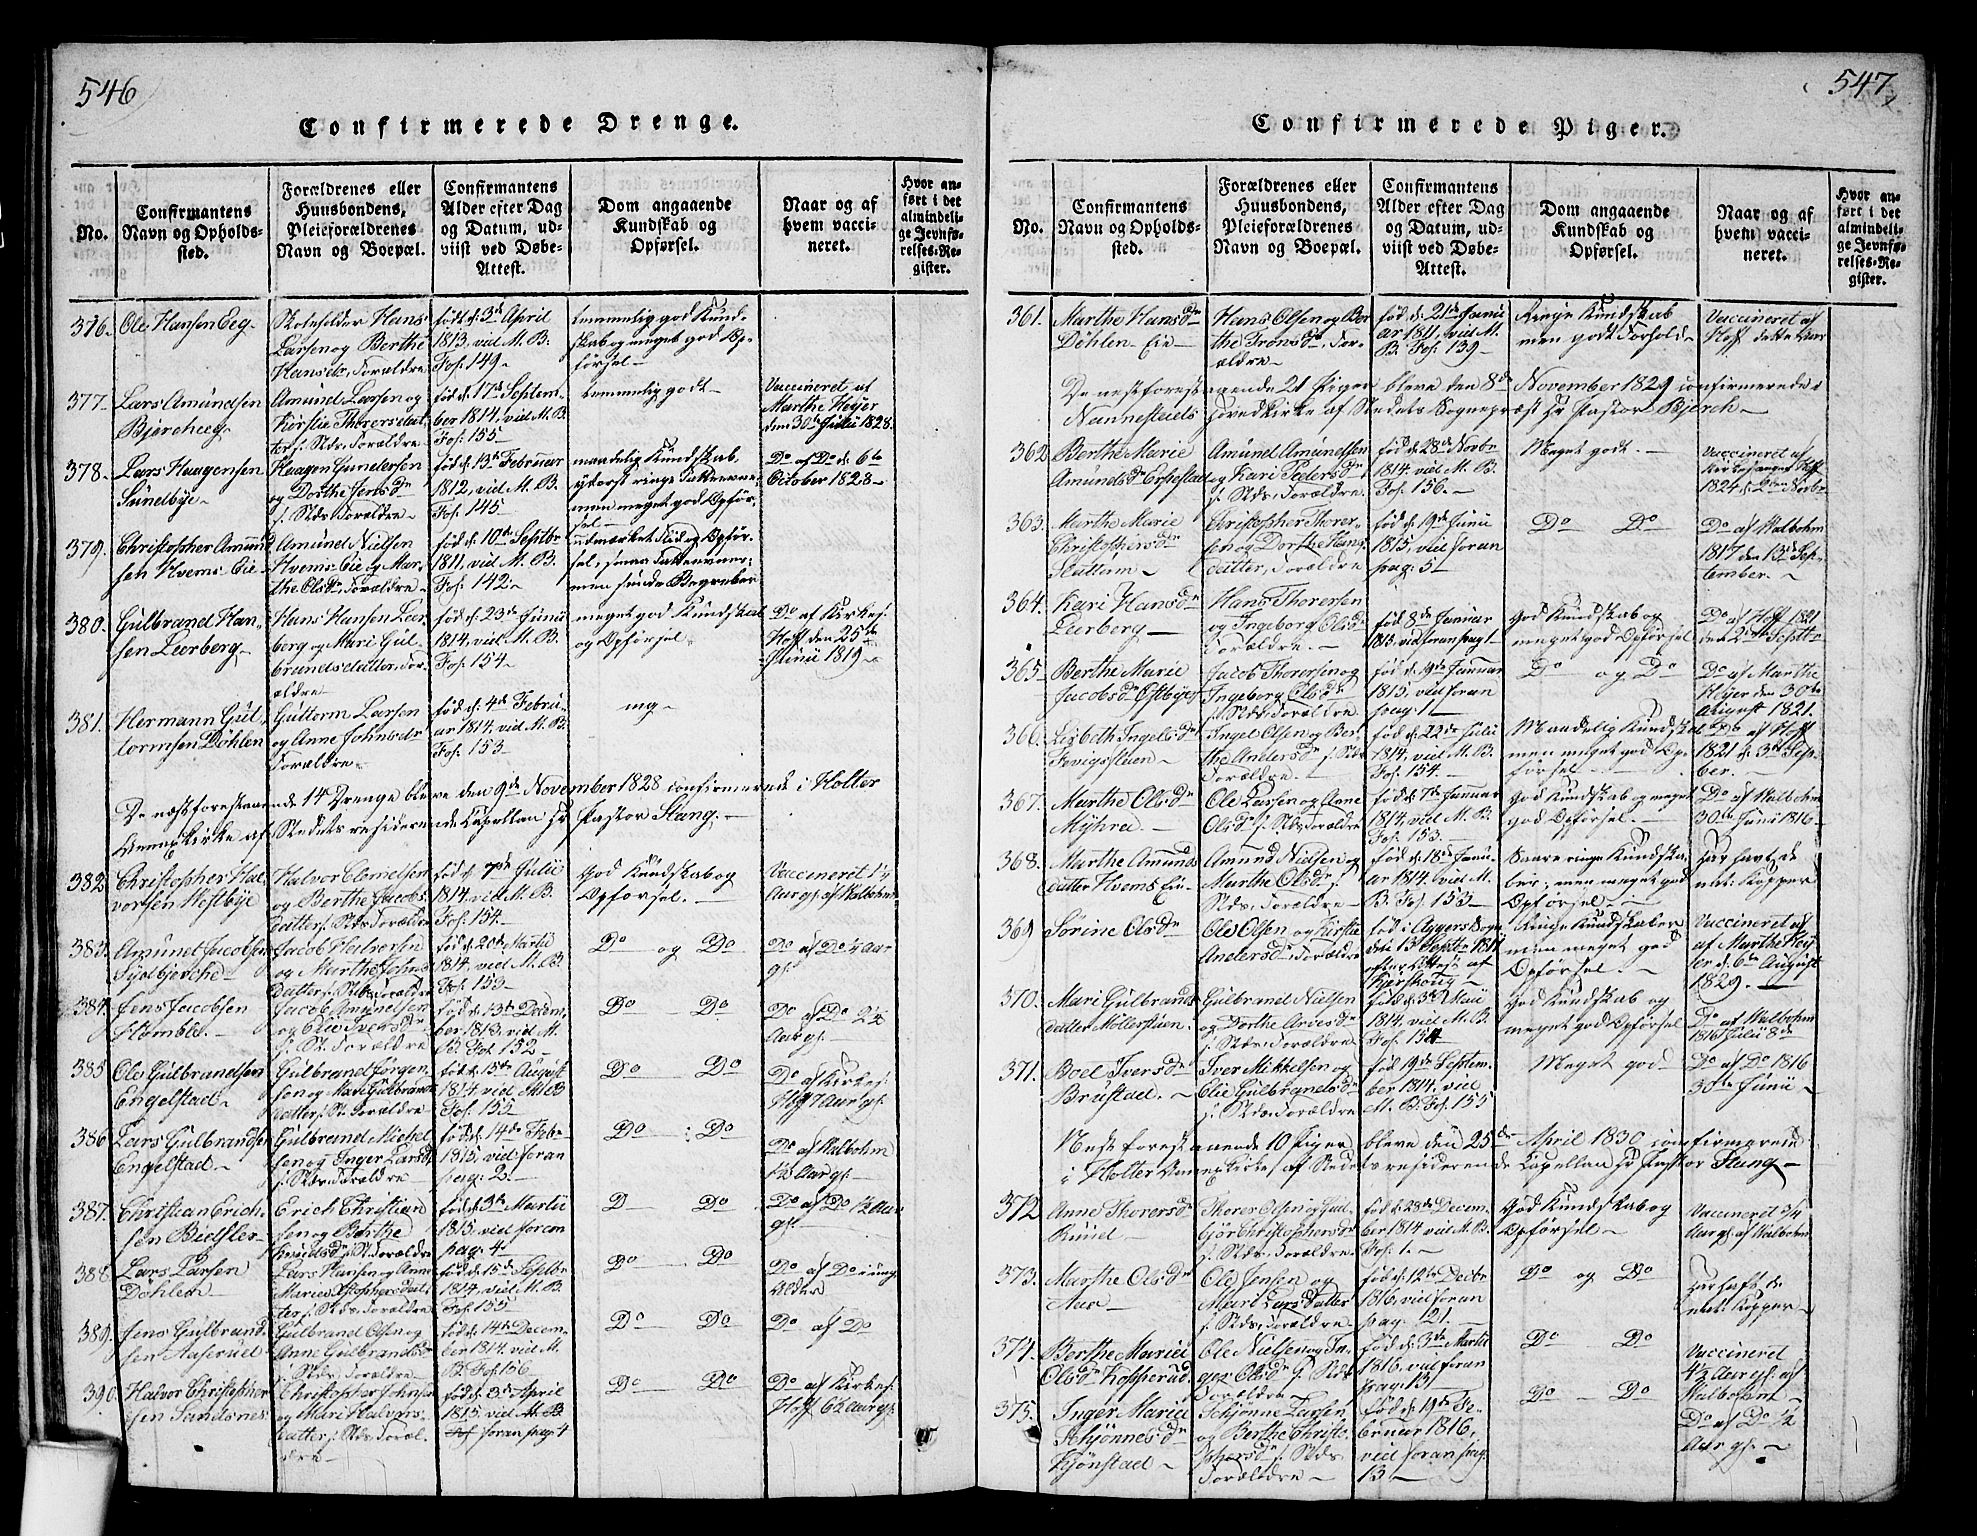 546
Confirmerede Drenge.
No.
Confirmantens Navn og Opholds-sted.
Forældrenes eller Huusbondens, Pleieforældrenes Navn og Boepæl.
Confirmantens Alder efter Dag og Datum, ud-viist ved Døbe-Attest.
Dom angaaende Kundskab og Opførsel.
Naar og af hvem vacci-neret.
Hvor an-ført i det almindeli-ge Jevnfø-relses-Re-gister.
376. Ole Hansen Eeg
Skoleholder Hans
Larsen og Berthe
Hansdr, Forældre
født d: 3d April
1813, vid M. B.
Fol: 149
temmelig god Kund-
skab og meget god Op-
førsel
377. Lars Amundsen
Bjercheeg
Amund Larsen og
Kirstie Thorersdat
ter s. Stds, Forældre
fød d: 17d Septem-
ber 1814, vid M. B.
Fol: 155
temmelig godt
Vaccineret af
Marthe Heyer
den 30 Julii 1828
378. Lars Haagensen
Sundbye
Haagen Gundersen
og Dorthe Jensdr
s. Stds, Forældre
fød d: 13d Februar
1812, vid M. B.
Fol: 145
maadelig Kundskab,
yderst ringe Fatteevne
men meget god Opfør-
sel
Do af Do d. 6te
October 1828
379. Christopher Amund
sen Hvems Eie
Amund Nielsen
Hvems Eie og Mar-
the Olsdr, Forældre
fød d: 10de Septbr
1811, vid M. B.
Fol: 142
udmærket Flid og Opfør-
sel, svag Fatteevne
men sunde Begreber
380. Gulbrand Han-
sen Leerberg
Hans Hansen Leer
berg og Mari Gul-
brandsdatter, For-
ældre
fød d: 23de Junii
1814, vid M. B.
Fol: 154
meget god Kundskab
og Opførsel
Do af Kirkes:
Hoff den 25de
Junii 1819
381. Hermann Gul
tormsen Døhlen
Guttorm Larsen
og Anne Johnsdr
Forældre
fød d: 4de Febru
ar 1814, vid M. B.
Fol: 153
mg
De næstforestaaende 14 Drenge bleve den 9de November 1828 confirmerede i Holter
Annex Kirke af Stedets residerende Capellan Hr Pastor Stang.
382 Christopher Hal
vorsen Hestbye
Halvor Clemetsen
og Berthe Jacobs
datter s. Stds Forældre
fød d: 7de Julii
1814, vid M. B.
Fol: 154
God Kundskab og
Opførsel.
Vaccineret 1¼
Aar gl. af Malbohm
383. Amund Jacobsen
Jacob Halvorsen
og Marthe Johns
datter s. Stds Forældre
fød d: 20de Martii
1814, vid M. B.
Fol: 153
Do og Do
384. Jens Jacobsen
Homble
Jacob Amundsen
og Olie Iversdr
s. St. Forældre
fød d: 13de Decem-
ber 1813, vid M.
B. Fol 152
Do Do
385 Ole Gulbrandsen
Engelstad
Gulbrand Jørgen
sen og Mari Gulbrands
datter s. St. Forældre
fød d: 15de August
1814 vid M. B
Fol: 155
Do Do
Do af Kirkes:
386 Lars Gulbrandsen
Engelstad
Gulbrand Michel
sen og Inger Larsdr
s. Stds Forældre
fød d: 14de Febr
1815, vid foran
pag: 2.
Do Do
Do af Malbohm
1½ Aar gl.
387. Christian Erich-
sen Bidsler
Erich Christian
sen og Berthe
Knudsdr s. St. Forældre
fød d: 3de Martii
1815, vid foran
pag: 4
D Do
388 Lars Larsen
Døhlen
Lars Hansen og Anne
fød d: 15de Septbr
1814, vid M. B
Fol: 155
Do Do
Do af Do i ung
Alder
389. Jens Gulbrand
sen Aaserud
Gulbrand Olsen og
Anne Gulbrandsdr
s. Stds, Forældre
fød d: 14de Decem-
ber 1814, vid M.
B. Fol 156
Do Do
Do af Do
390. Halvor Christopher
sen Sandsnes
Christopher Johnsen
og Mari Halvors-
datter s. Stds, Foræl-
dre
fød d: 3d April
1815, vid M. B.
foran pag: 4
Do Do
Do af Kirkes:
547
Confirmerede Piger.
No.
Confirmantens Navn og Opholds-sted.
Forældrenes eller Huusbondens, Pleieforældrenes Navn og Boepæl.
Confirmantens Alder efter Dag og Datum, ud-viist ved Døbe-Attest.
Dom angaaende Kundskab og Opførsel.
Naar og af hvem vacci-neret.
Hvor an-ført i det almindeli-ge Jevnfø-relses-Re-gister.
361. Marthe Hansdr
Døhlen Eie
Hans Olsen og Ber
the Tronsdr, For-
ældre
fød d: 21de Janu
ar 1811, vid M.
B. Fol: 139
Ringe Kundskab
men godt Forhold
Vaccineret af
Hoff dette Aar
De nestforestaaende 21 Piger bleve den 8de November 1829 confirmerede i
Nannestads Hovedkirke af Stedets Sognepræst Hr Pastor Bjerch
362 Berthe Marie
Amundsdr
Amund Amundsen
og Kari Pedersdr
s. Stds, Forældre
fød d: 28de Novbr
1814, vid M. B.
Fol: 156.
Meget godt.
Vaccineret af
Kirkesanger Hoff
1824 d. 2den Novbr
363. Marthe Marie
Christophersdr
Slattum
Christopher Thorer-
sen og Dorthe Hans
datter, Forældre
fød d: 19de Junii
1815, vid foran
pag: 5
Do Do
Do af Malbohm
1817 den 13de Sep-
tember.
364. Kari Hansdr
Leerberg
Hans Thorersen
og Ingeborg Olsdr
Forældre.
fød 8de Januar
1813. vid foran pag 1
God Kundskab og
meget god Opførsel
Do af Hoff 1821
den 2den Septbr
365. Berthe Marie
Jacobsdr Østbye
Jacob Thorersen og
Ingeborg Olsdr
s. Stds, Forældre
fød d: 9de Januar
1815, vid foran
pag: 1
Do og Do
Do af Marthe
Heyer den 30te
August 1821.
366. Lisbeth Ingelsdr
Ingel Olsen og Ber-
the Andersdr s. Stds
Forældre
fød d: 22de Julii
1814, vid M. B.
Fol: 154.
Maadelig Kundskab
men meget god Op-
førsel.
Do af Hoff
1821 d. 3de Sep-
ber.
367. Marthe Olsdr
Myhre.
Ole Larsen og Anne
Olsdr s. Stds, Forældre
fød d: 7de Januar
1814, vid M. B.
Fol: 153.
God Kundskab og meget
god Opførsel.
Do af Malbohm
30te Juni 1816
368. Marthe Amunds
datter Hvems Eie
Amund Nielsen og
Marthe Olsdr s.
Stds, Forældre
fød d: 18de Janu-
ar 1814, vid M.
B. Fol: 153
Saare ringe Kundska-
ber, men meget god
Opførsel.
har havt de
nat: Kopper
369 Sørine Olsdr
Ole Olsen og Kirstie
Andersdr, Forældre
fød i Aggers Sogn
den 13 Septbr 1814
efter Attest af
Ringe Kundskaber
men meget god
Opførsel.
Vaccineret af
af Marthe Hey
er d. 6te August
1829.
370. Mari Gulbrands
datter Møllerstuen.
Gulbrand Nielsen
og Dorthe Arnesdr
s. Stds, Forældre
fød d: 3de Maii
1814, vid M. B.
Fol: 154
God Kundskab og
meget god Opførsel
Do af Malbohm
1816 Julii 8de
371. Boel Iversdr
Brustad.
Iver Mikkelsen og
Olie Gulbrandsdr
s. Stds, Forældre
fød 19de Septem-
ber 1814, vid
M. B. Fol: 155
Meget god
Do af Do 1816
30te Junii
Nest forestaaende 10 Piger bleve den 25de April 1830 confirmerede
i Holter Annexkirke af Stedets residerende Capellan Hr Pastor Stang
372 Anne Thorersdr
Ruud
Thorer Olsen og Gul
bjør Christophersdr
s. Stds: Forældre
fød d: 28de Decem-
ber 1814 vid M. B.
Fol: 1.
God Kundskab og
Opførsel
Vaccineret 3/4
Aar gl. af Malbohm
373. Marthe Olsdr
Aas
Ole Jensen og
Mari Larsdatter
s. Stds, Forældre
fød d: 12te Decbr
1816, vid foran
pag: 21.
Do og Do
har haft de
nat: Kopper
374. Berthe Marie
Olsdr Kopperud
Ole Nielsen og In-
ger Olsdr s. Stds
Forældre
fød d: 3de Martii
1816, vid foran
pag: 13
Do Do
Vaccineret
4½ Aar gl. af
Malbohm
375. Inger Marie
Schjønnesdr
Kjønstad
Schjønne Larsen
og Berthe Christo
phersdr s. Stds,
Forældre
fød d: 19de Fe-
bruar 1816,
vid foran pag:
13
Do Do
Do af Do ½
Aar gl.